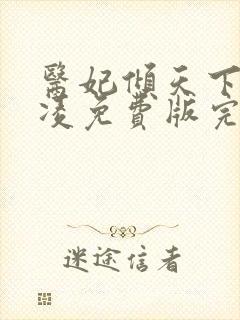 醫妃傾天下
凌免費版完
迷途信者